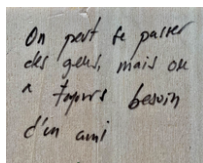 On peut se passer
des gens, mais on
a toujours besoin
d'un ami